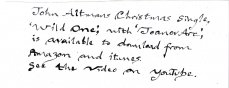 John Altmans Christmas Single,
'Wild One', with 'Joanovarc',
is available to download from
Amazon and itunes.
See the video on youtube.